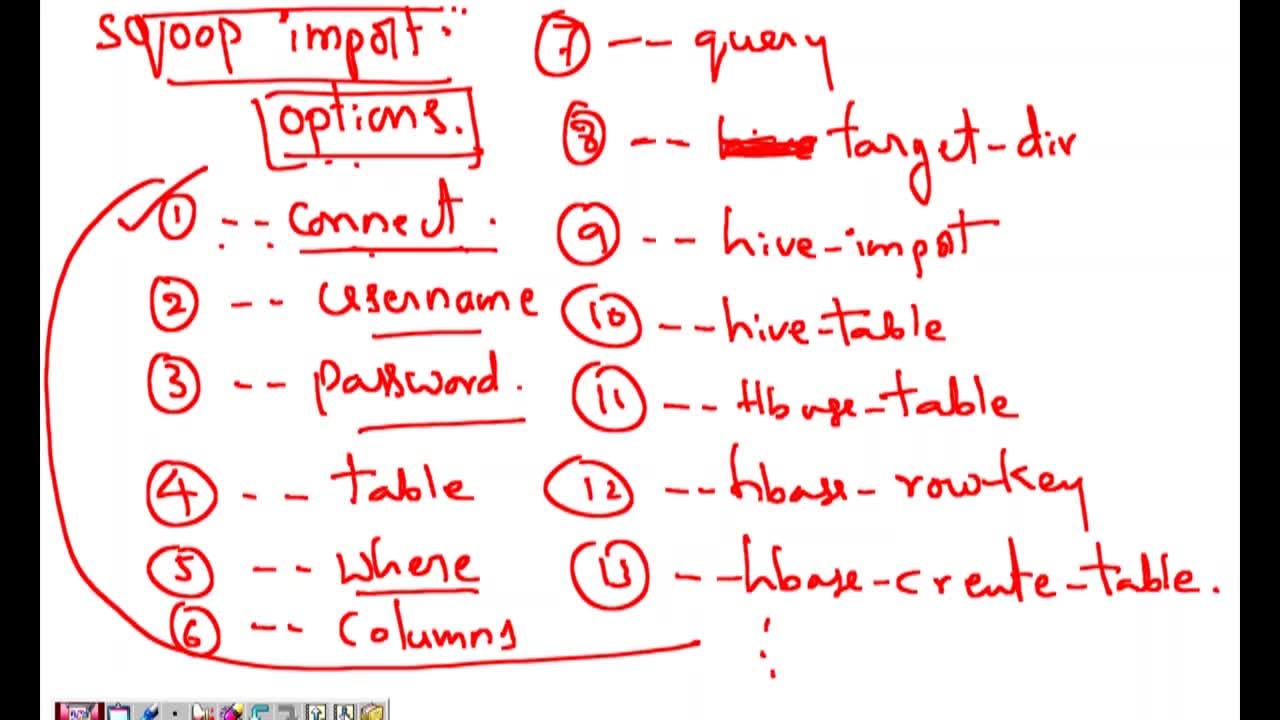 sqoop import:
options.
① -- connect.
② -- username
③ -- password.
④ -- table
⑤ -- where
⑥ -- columns
⑦ -- query
⑧ -- target-dir
⑨ -- hive-import
⑩ -- hive-table
⑪ -- Hbase-table
⑫ -- hbase-row-key
⑬ -- hbase-create-table.